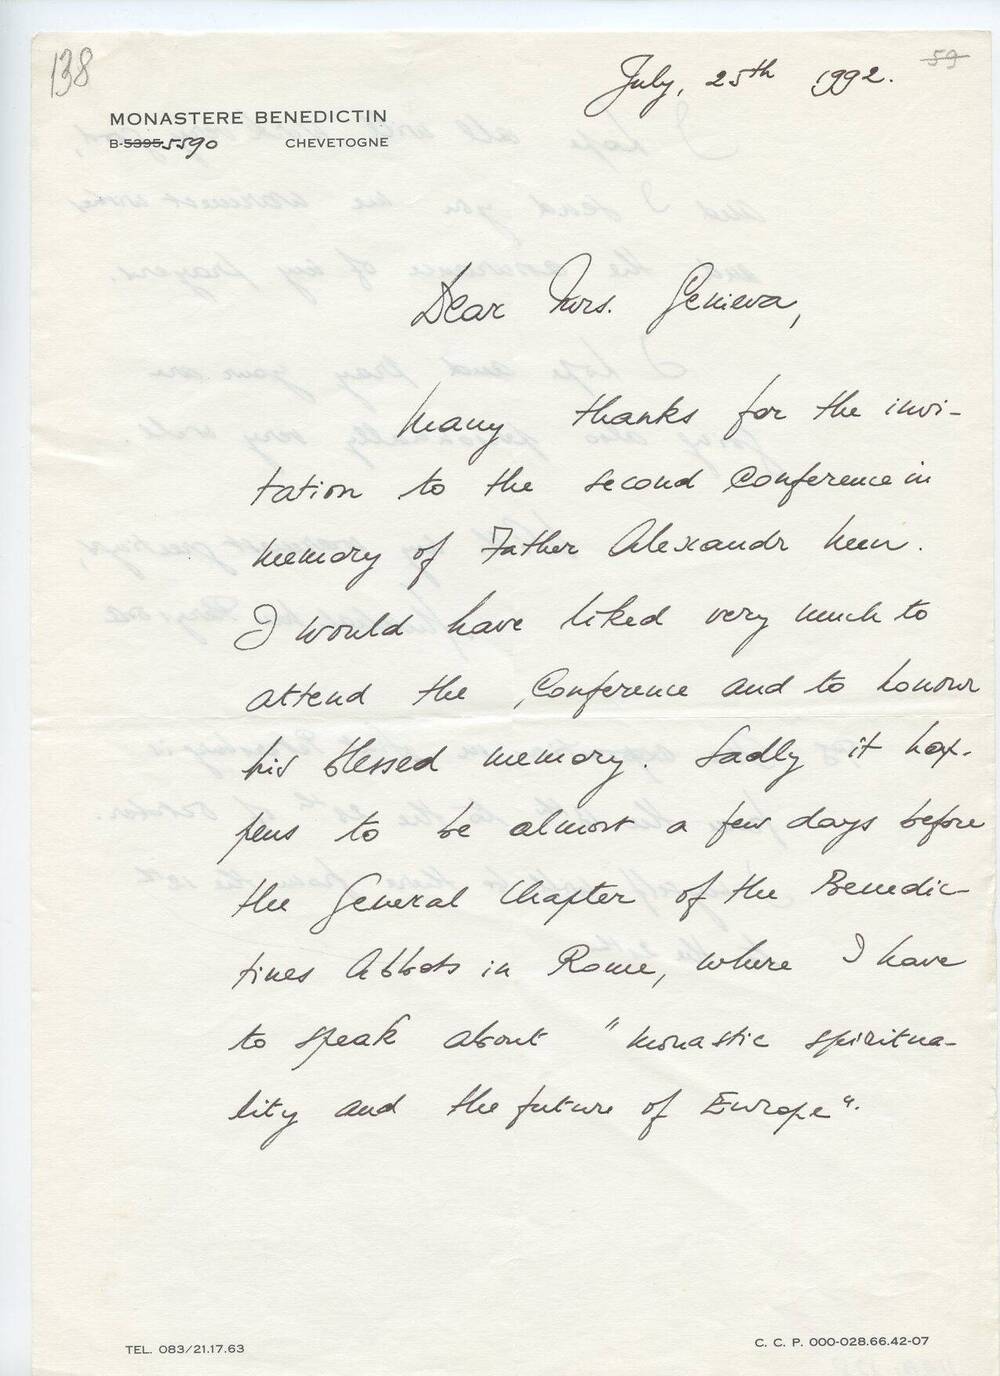 138
59
July, 25th 1992.
MONASTERE BENEDICTIN
B-5395 5590 CHEVETOGNE
Dear Mrs. Genieva,
Many thanks for the invi-
tation to the second Conference in
memory of Father Alexandr Men.
I would have liked very much to
attend the Conference and to honour
his blessed memory. Sadly it hap-
pens to be almost a few days before
the General Chapter of the Benedic-
tines Abbots in Rome, where I have
to speak about "monastic spiritua-
lity and the future of Europe".
TEL. 083/21.17.63
C. C. P. 000-028.66.42-07